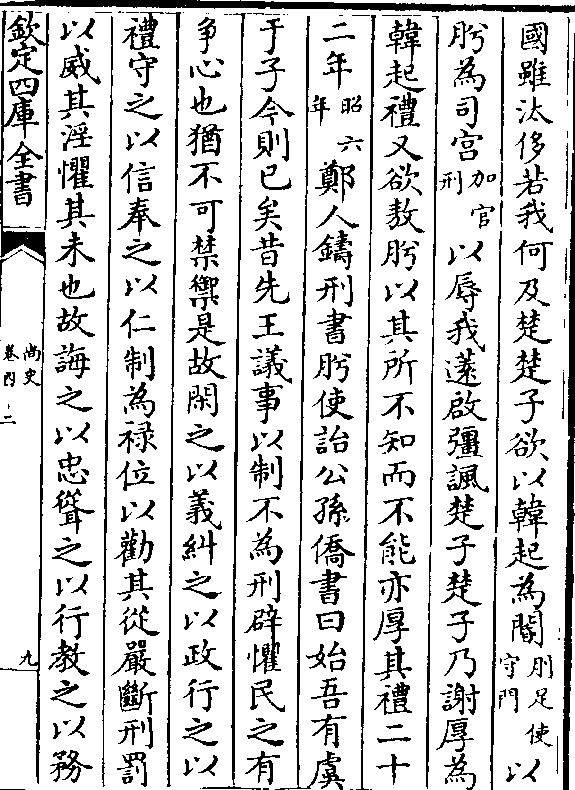 國雖汰侈若我何及楚楚子欲以韓起為閽刖足使守門以
肸為司宫加官刑以辱我薳啟彊諷楚子楚子乃謝厚為
韓起禮又欲敖肸以其所不知而不能亦厚其禮二十
二年昭六年鄭人鑄刑書肸使詒公孫僑書曰始吾有虞
于子今則已矣昔先王議事以制不為刑辟懼民之有
争心也猶不可禁禦是故閑之以義糾之以政行之以
禮守之以信奉之以仁制為禄位以勸其從嚴斷刑罰
以威其淫懼其未也故誨之以忠聳之以行教之以務
欽定四庫全書
尚史
卷四十二
九